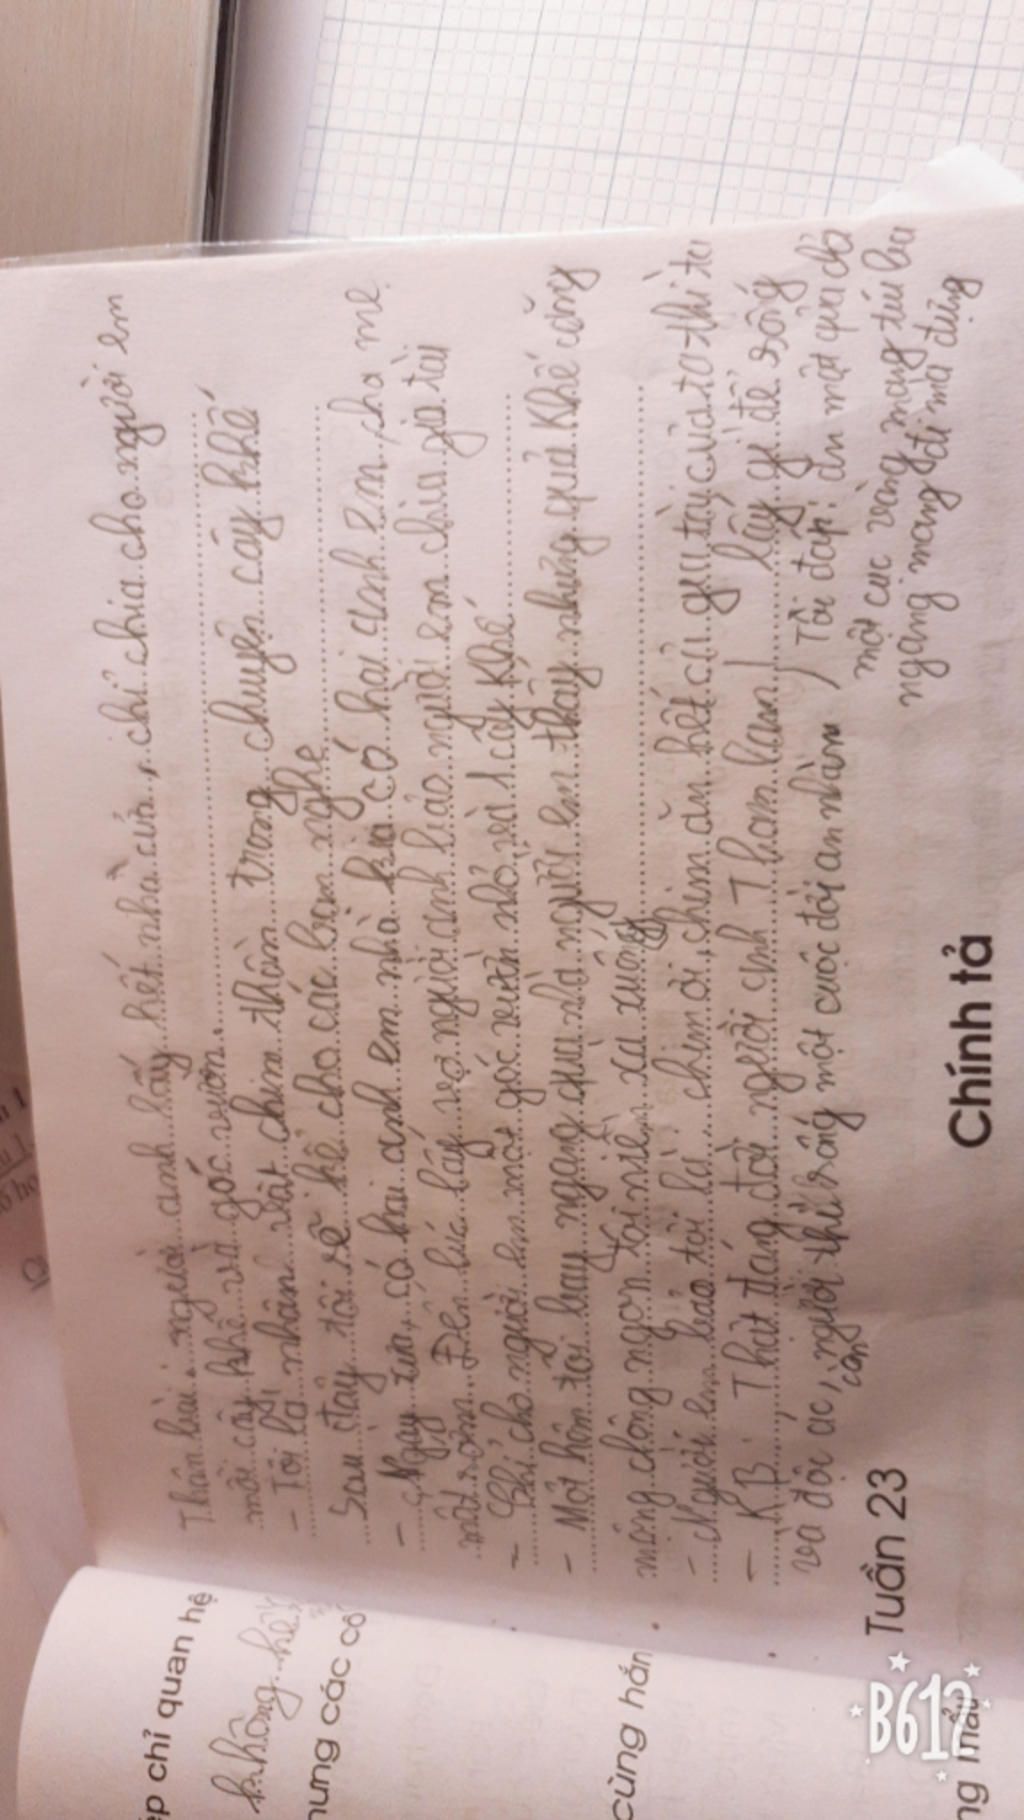 Thân bài: người anh lấy hết nhà cửa, chỉ chia cho người em
mỗi cây khế và góc vườn.
- Tôi là nhân vật chim thần trong chuyện cây khế
Sau đây tôi sẽ kể cho các bạn nghe
- Ngày xửa, có hai anh em nhà kia có hai anh em, cha mẹ
mất sớm. Đến lúc lấy vợ người anh bảo người em chia gia tài
- Chỉ cho người em một góc vườn nhỏ và 1 cây khế
- Một hôm tôi bay ngang qua nhà người em thấy những quả khế căng
mọng chông ngon tôi niền xa xuống
- Người em bảo tôi là: chim ơi, chim ăn hết cả gia tày của ta thì ta
lấy gì để sống
- KB: Thật đáng đời người anh Tham lam
và độc ác, người thì sống một cuộc đời an nhàn
còn
Tôi đáp: ăn một quả chả
một cục vàng mang túi ba
ngang mang đi mà đựng
Tuần 23
Chính tả
ếp chỉ quan hệ
không hết
nhưng các cố
cùng hắn
B612